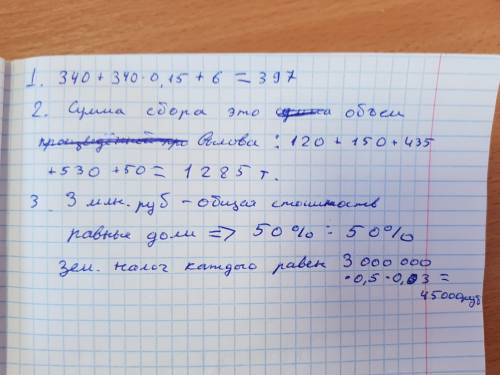 1. 340 + 340 · 0,15 + 6 = 397
2. Сумма сбора это объем
улова : 120 + 150 + 435
+ 530 + 50 = 1285 т.
3. 3 млн. руб – общая стоимость
равные доли => 50% : 50%
Зем. налог каждого равен 3 000 000
· 0,5 · 0,03 =
45000руб